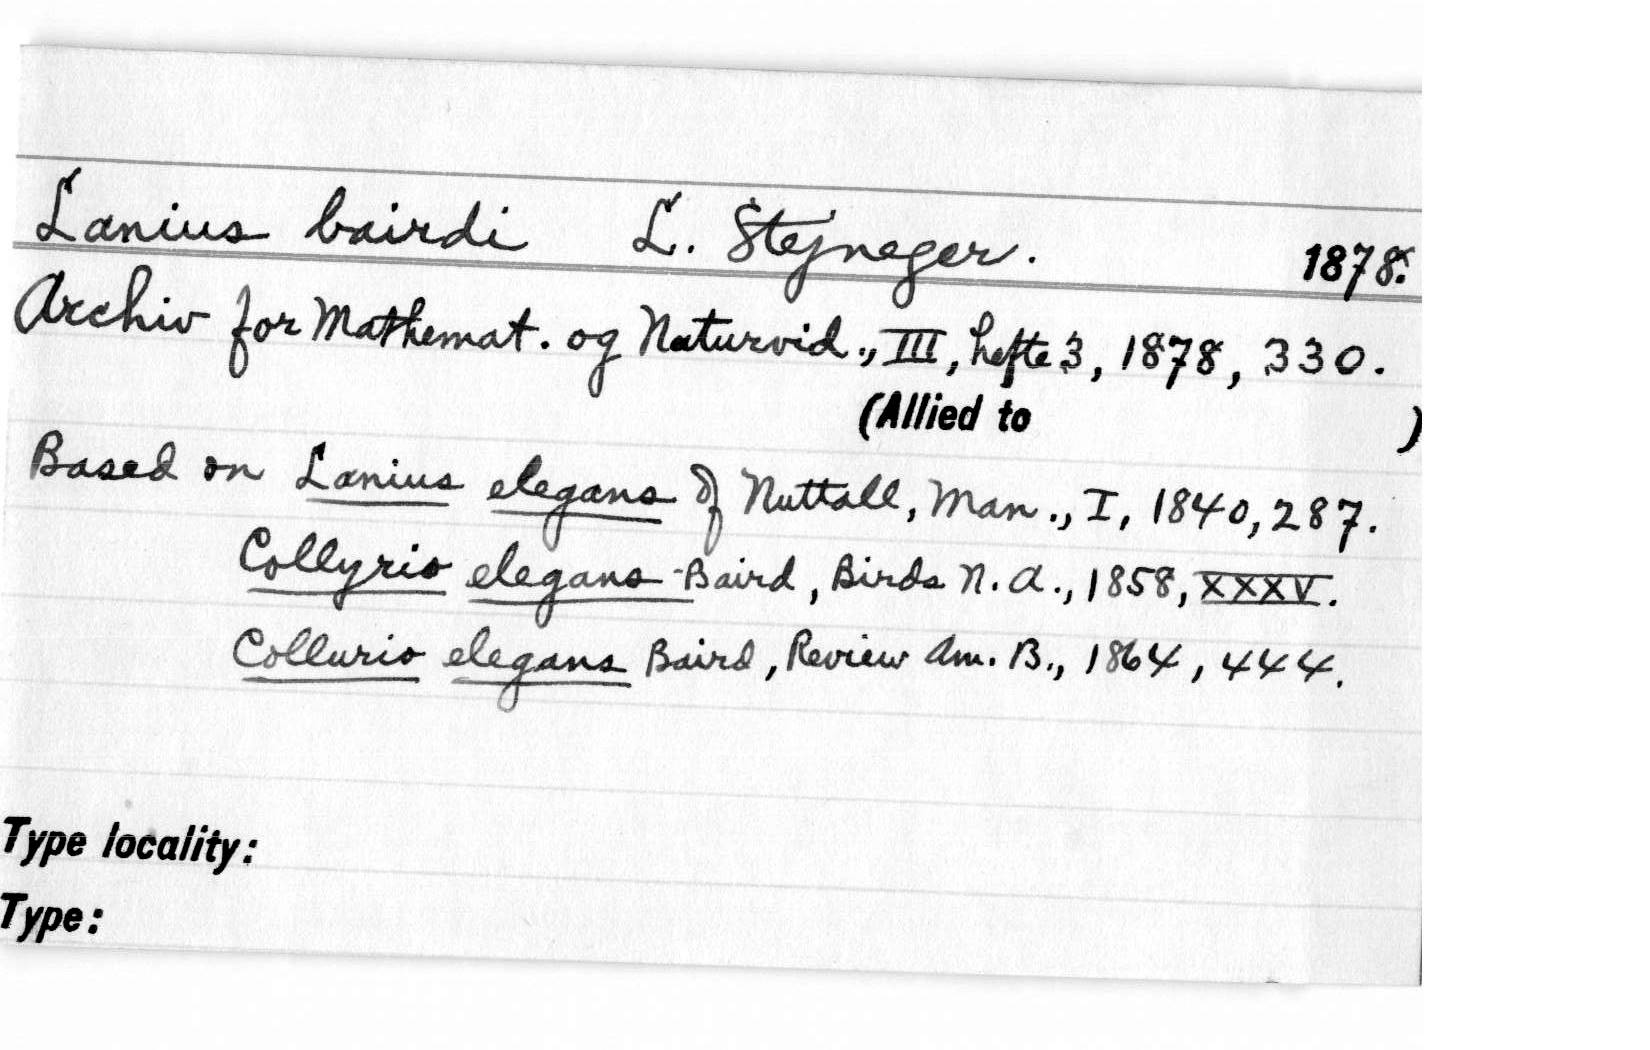 Lanius bairdi L. Stejneger. 1878.
Archiv for Mathemat. og Naturvid., III, hefte 3, 1878, 330.
(Allied to )
Based on Lanius elegans of Nuttall, Man., I, 1840, 287.
Collyrio elegans Baird, Birds N. A., 1858, XXXV.
Collurio elegans Baird, Review Am. B., 1864, 444.
Type locality:
Type: